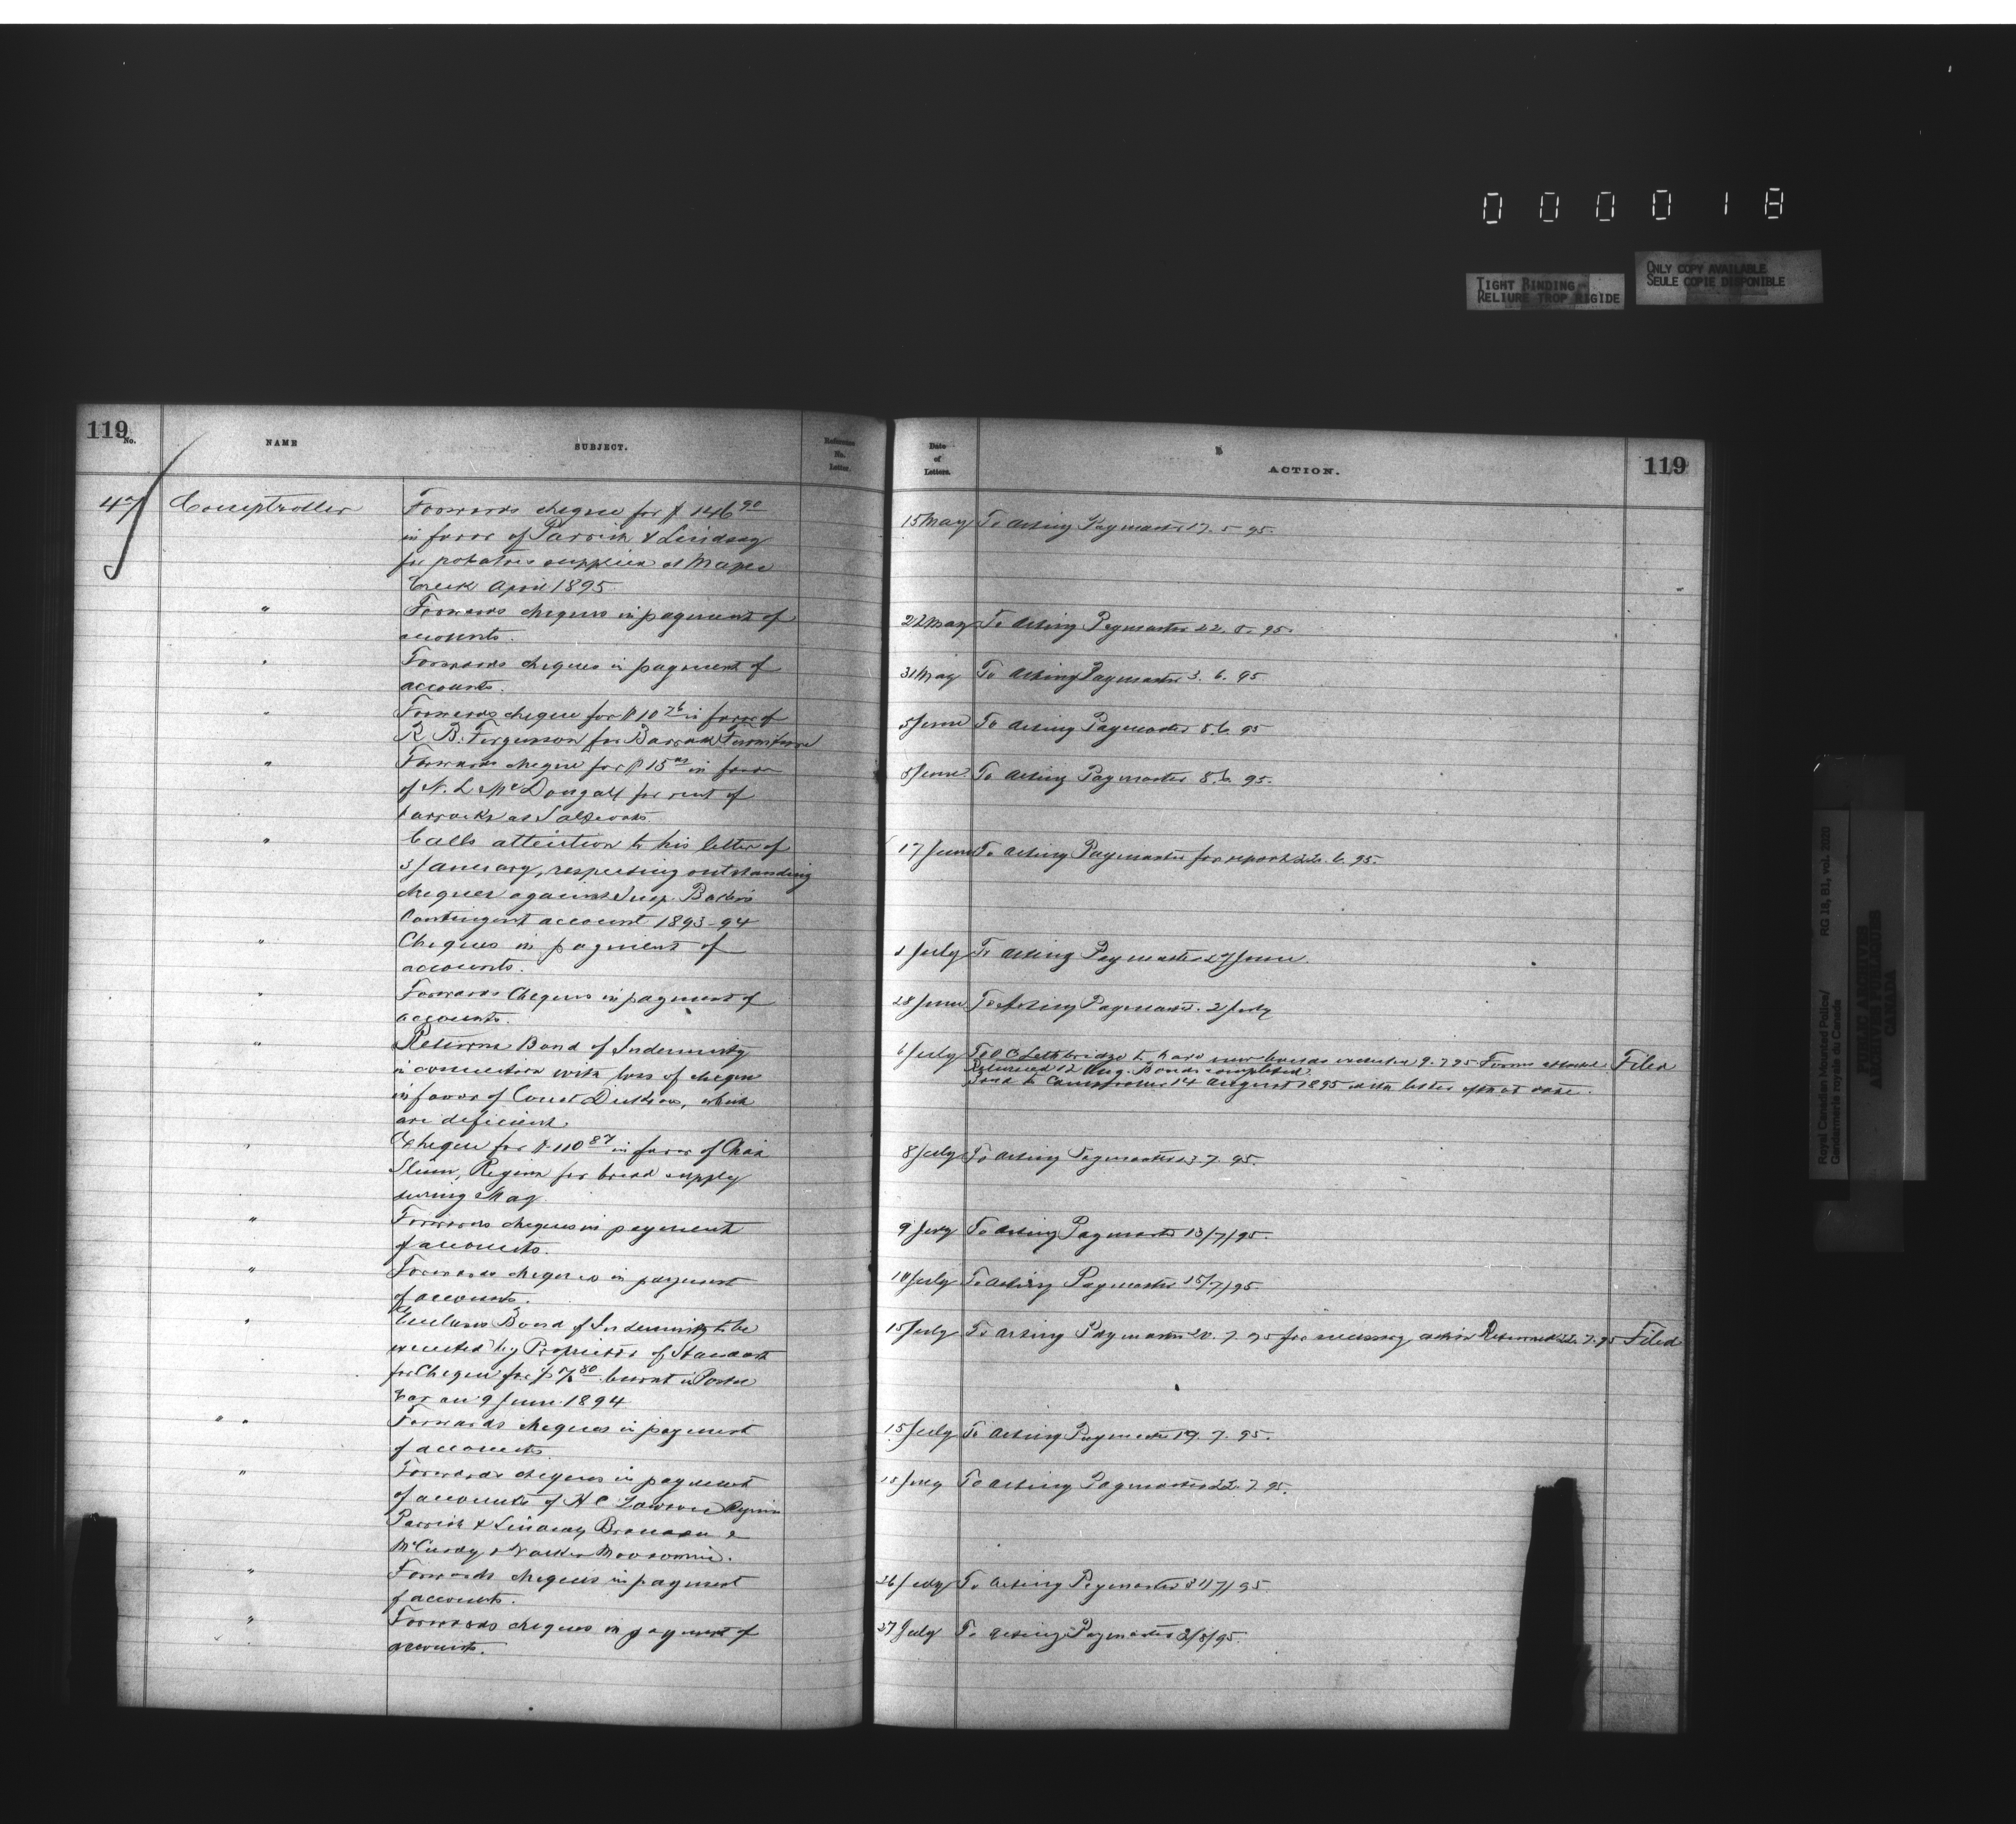 000018
TIGHT BINDING
RELIURE TROP RIGIDE
ONLY COPY AVAILABLE
SEULE COPIE DISPONIBLE
119
No.
NAME
SUBJECT.
Reference
No.
Letter.
47
Comptroller
Forwards cheque for $ 146 90
in favor of Parrish & Lindsay
for potatoes supplied at Maple
Creek April 1895
" Forwards cheques in payment of
accounts.
" Forwards cheques in payment of
accounts.
" Forwards cheque for $10 76 in favor of
R. B. Fergusson for Barrack Furniture
" Forwards cheque for $15 in favor
of N. L. McDougall for rent of
barracks at Saltcoats.
" Calls attention to his letter of
3 January, respecting outstanding
cheques against Insp.
Contingent account 1893-94
" Cheques in payment of
accounts.
" Forwards Cheques in payment of
accounts.
" Returns Bond of Indemnity
in connection with loss of cheque
in favor of Const which
are deficient.
" Cheque for $110 87 in favor of
Regina for bread supply
during May.
" Forwards cheques in payment
of accounts.
" Forwards cheques in payment
of accounts.
" Encloses Bond of Indemnity to be
executed by Proprietor of Standard
for Cheque for $ 80 burnt in Postal
Car on 9 June 1894
" " Forwards cheques in payment
of accounts
" Forwards cheques in payment
of accounts of H C Lawson Regina
Parrish & Lindsay Brandon &
McCurdy & Moosomin.
" Forwards cheques in payment
of accounts.
" Forwards cheques in payment of
accounts.
Date
of
Letters.
ACTION.
119
15 May To Acting Paymaster 17. 5 95.
22 May To Acting Paymaster 22. 5. 95.
31 May To Acting Paymaster 3. 6. 95
5 June To Acting Paymaster 8.6. 95
5 June To Acting Paymaster 8.6. 95.
17 June To Acting Paymaster for report 22. 6. 95.
July To Acting Paymaster 27 June.
28 June To Acting Paymaster. 2 July
6 July To O C Lethbridge to have new bonds executed 9. 7 95 Forms attached. Filed
Returned 12 Aug. Bonds completed.
Sent to Comptroller 14 August 1895 with letter of that date.
8 July To Acting Paymaster 13. 7. 95.
9 July To Acting Paymaster 13/7/95.
10 July To Acting Paymaster 15/7/95
15 July To Acting Paymaster 20. 7. 95 for necessary action Returned 22. 7. 95 Filed
15 July To Acting Paymaster 19. 7. 95.
18 July To Acting Paymaster 22. 7 95.
26 July To Acting Paymaster 31/7/95.
27 July To Acting Paymaster 2/8/95.
Royal Canadian Mounted Police/ RG 18, B1, vol. 2020
Gendarmerie royale du Canada
PUBLIC ARCHIVES
ARCHIVES PUBLIQUES
CANADA